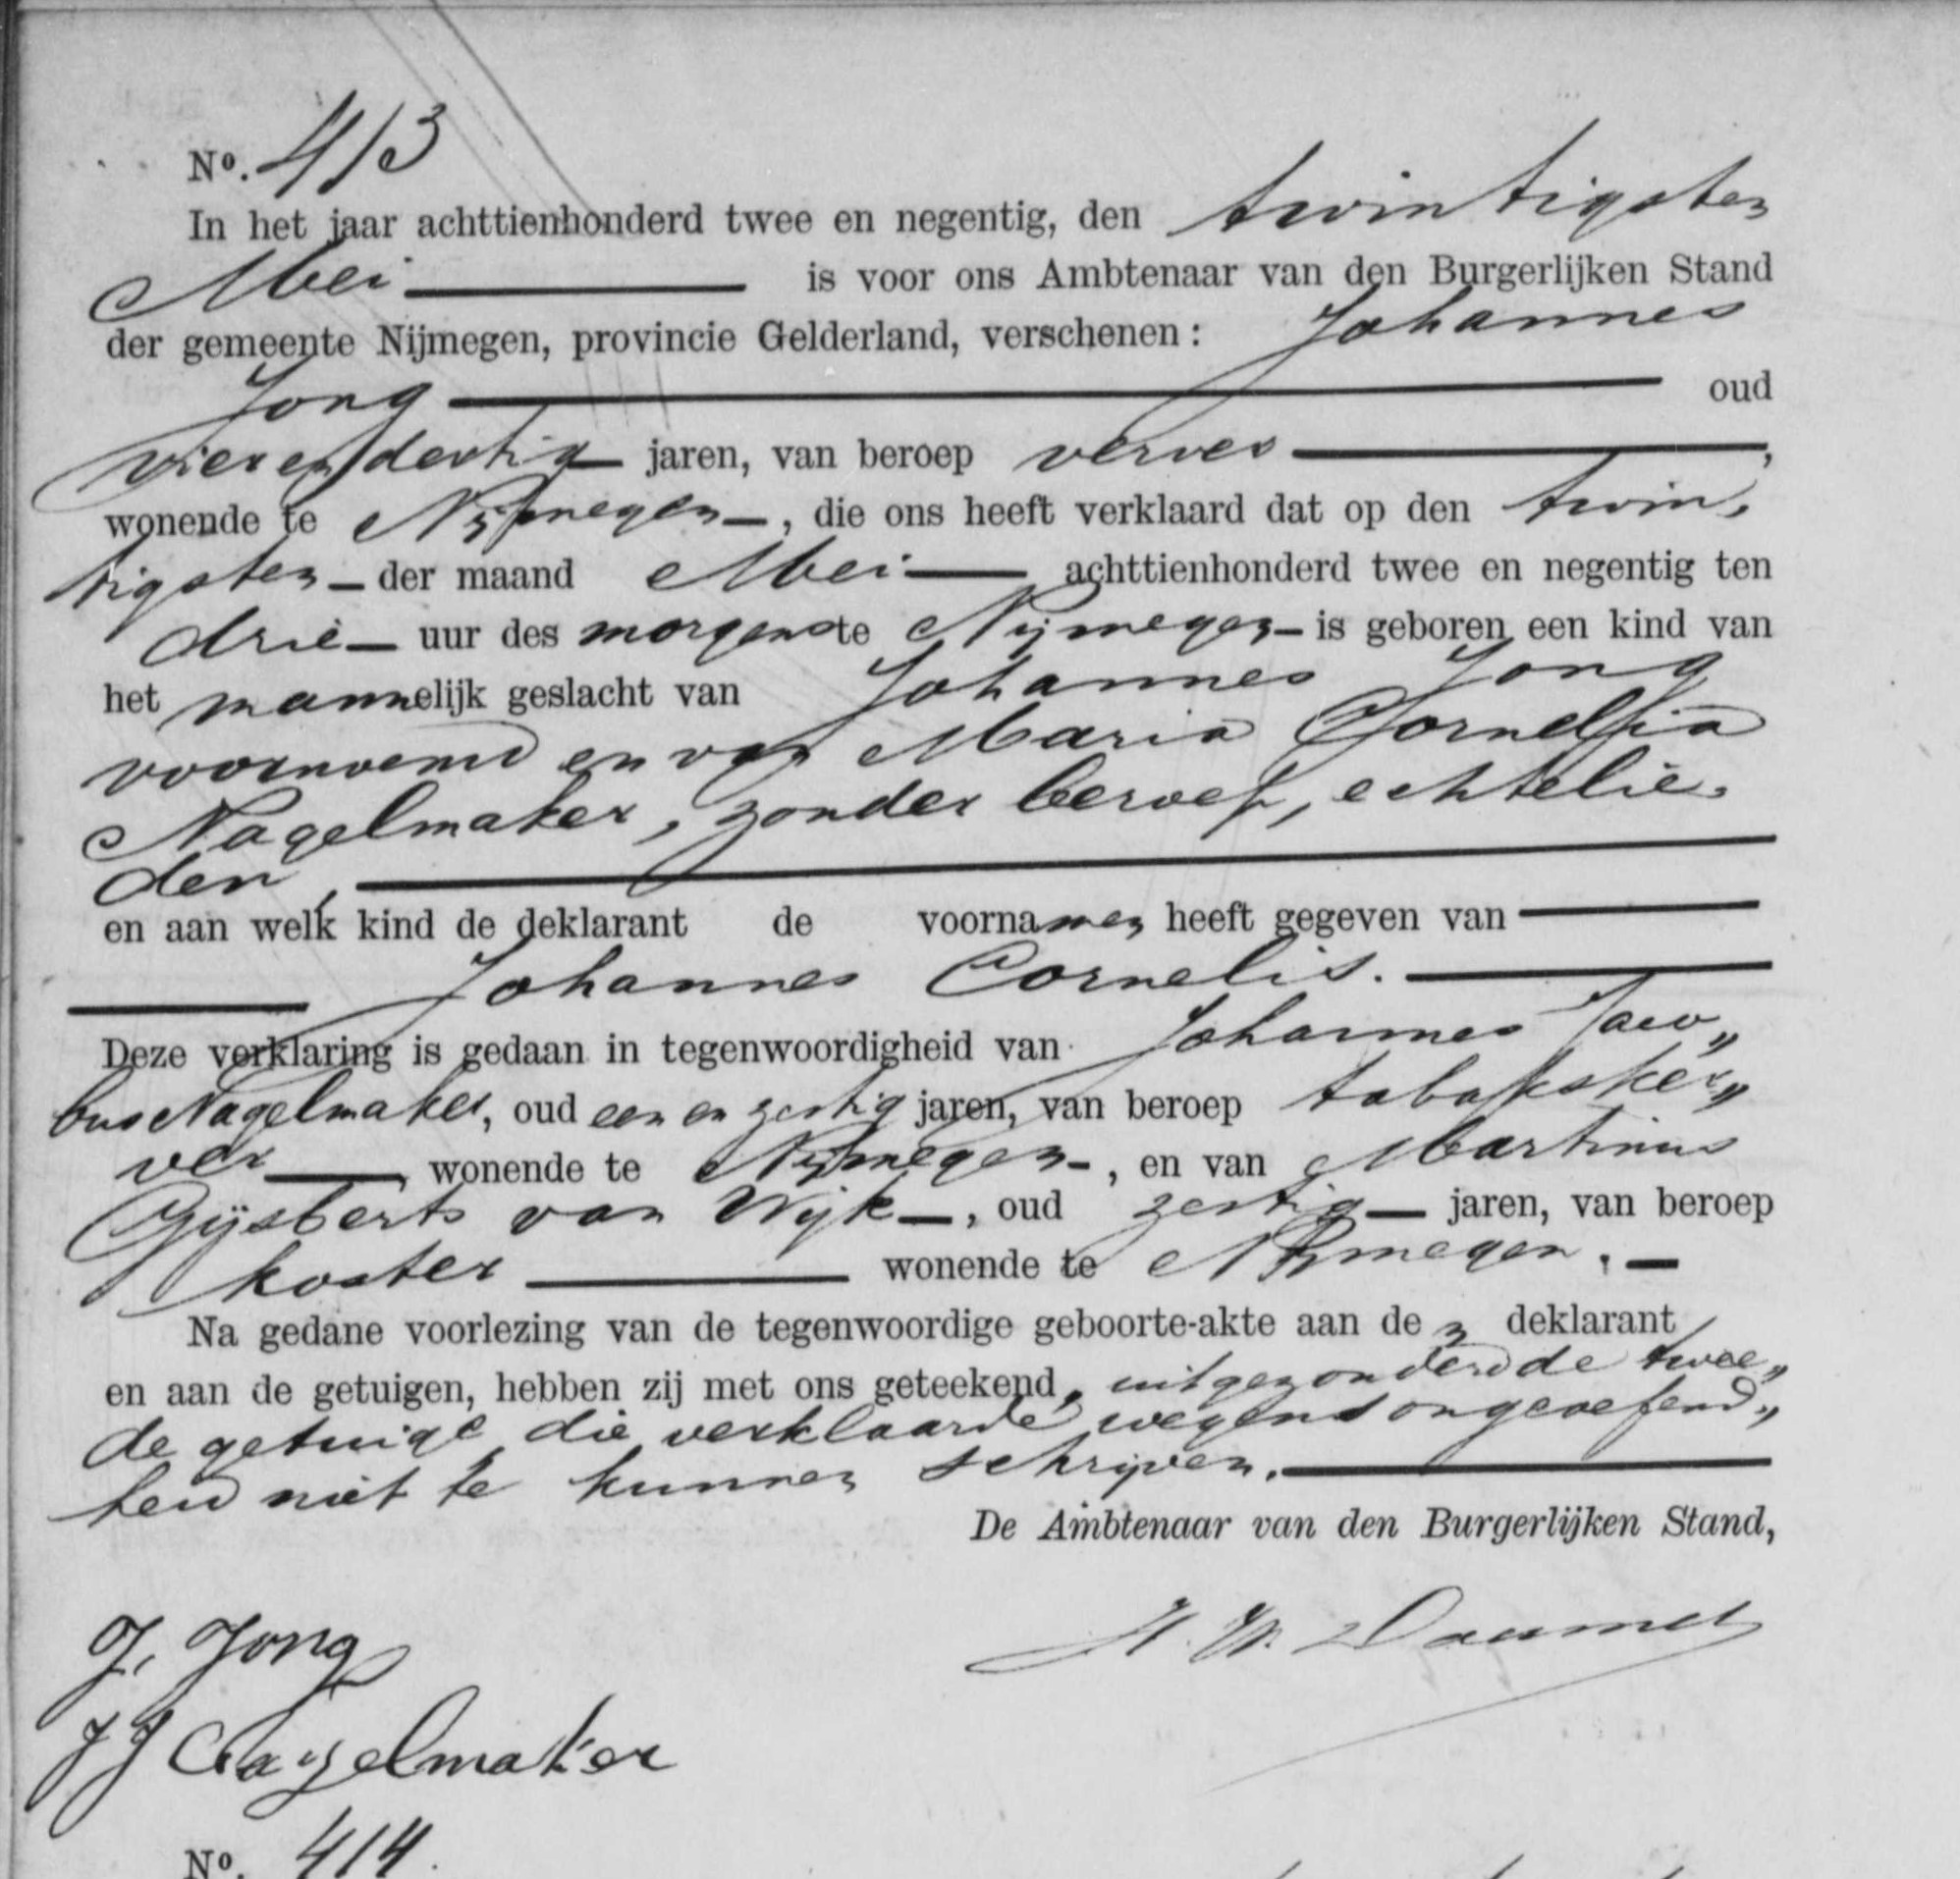 No. 413
In het jaar achttienhonderd twee en negentig, den twintigsten
Mei — is voor ons Ambtenaar van den Burgerlijken Stand
der gemeente Nijmegen, provincie Gelderland, verschenen: Johannes
Jong — oud
vier en dertig — jaren, van beroep verver —,
wonende te Nijmegen —, die ons heeft verklaard dat op den twin,
tigsten — der maand Mei — achttienhonderd twee en negentig ten
drie — uur des morgens te Nijmegen — is geboren een kind van
het mannelijk geslacht van Johannes Jong
voornoemd en van Maria Cornelia
Nagelmaker, zonder beroep, echtelie,
den, —
en aan welk kind de deklarant de voornamen heeft gegeven van —
— Johannes Cornelis. —
Deze verklaring is gedaan in tegenwoordigheid van Johannes Jaco„
bus Nagelmaker, oud een en zestig jaren, van beroep tabaksker„
ver —, wonende te Nijmegen —, en van Martinus
Gijsberts van Wijk —, oud zestig — jaren, van beroep
koster — wonende te Nijmegen. —
Na gedane voorlezing van de tegenwoordige geboorte-akte aan den deklarant
en aan de getuigen, hebben zij met ons geteekend, uitgezonderd de twee„
de getuige die verklaarde wegens ongeoefend„
heid niet te kunnen schrijven. —
De Ambtenaar van den Burgerlijken Stand,
J. Jong
JJ Nagelmaker
No. 414.